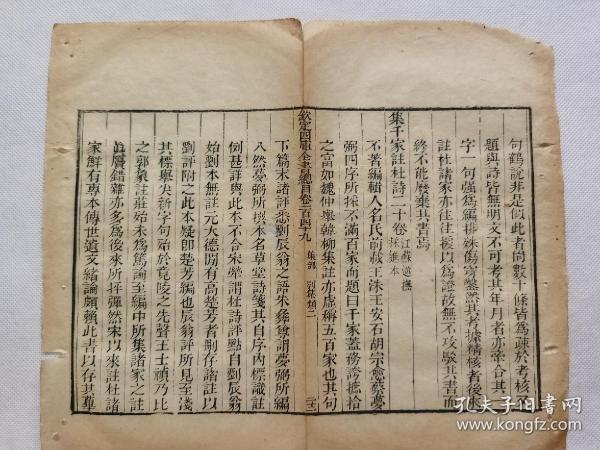 句鶴說非是似此者尚數十條皆為疎於考核又
題與詩皆無明文不可考其年月者亦牽合其一
字一句強為編排殊傷穿鑿然其考據精核者後來
註杜諸家亦往往援以為證故無不攻駁其書而
終不能廢棄其書焉
集千家註杜詩二十卷 江蘇巡撫採進本
不著編輯人名氏前載王洙王安石胡宗愈蔡夢
弼四序所採不滿百家而題曰千家蓋務誇摭拾
之富如魏仲舉韓柳集註亦虛稱五百家也其句
欽定四庫全書總目卷一百四十九 集部 別集類二
下篇末諸評悉劉辰翁之語朱彝尊謂夢弼所編
入然夢弼所撰本名草堂詩箋其自序內標識註
例甚詳與此本不合宋犖謂杜詩評點自劉辰翁
始劉本無註元大德間有高楚芳者刪存諸註以
劉評附之此本疑即楚芳編也辰翁評所見至淺
其標舉尖新字句殆於竟陵之先聲王士禎乃比
之郭象註莊殆未為篤論至編中所集諸家之註
真贗錯雜亦多為後來所抨彈然宋以來註杜諸
家鮮有專本傳世遺文緒論頗賴此書以存其蓽
孔夫子旧书网
www.kongfz.com